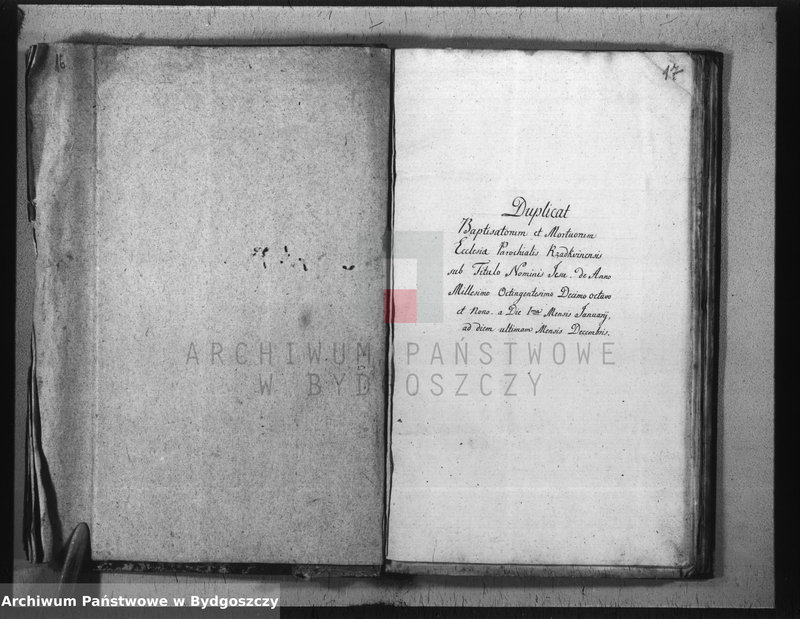 16
17
Duplicat
Baptisatorum et Mortuorum
Ecclesia Parochialis Rzadkvinensis
sub Titulo Nominis Jesu. de Anno
Millesimo Octingentesimo Decimo octavo
et Nono. a Die 1ma Mensis Januarij.
ad diem ultimam Mensis Decembris.
ARCHIWUM PAŃSTWOWE
W BYDGOSZCZY
Archiwum Państwowe w Bydgoszczy